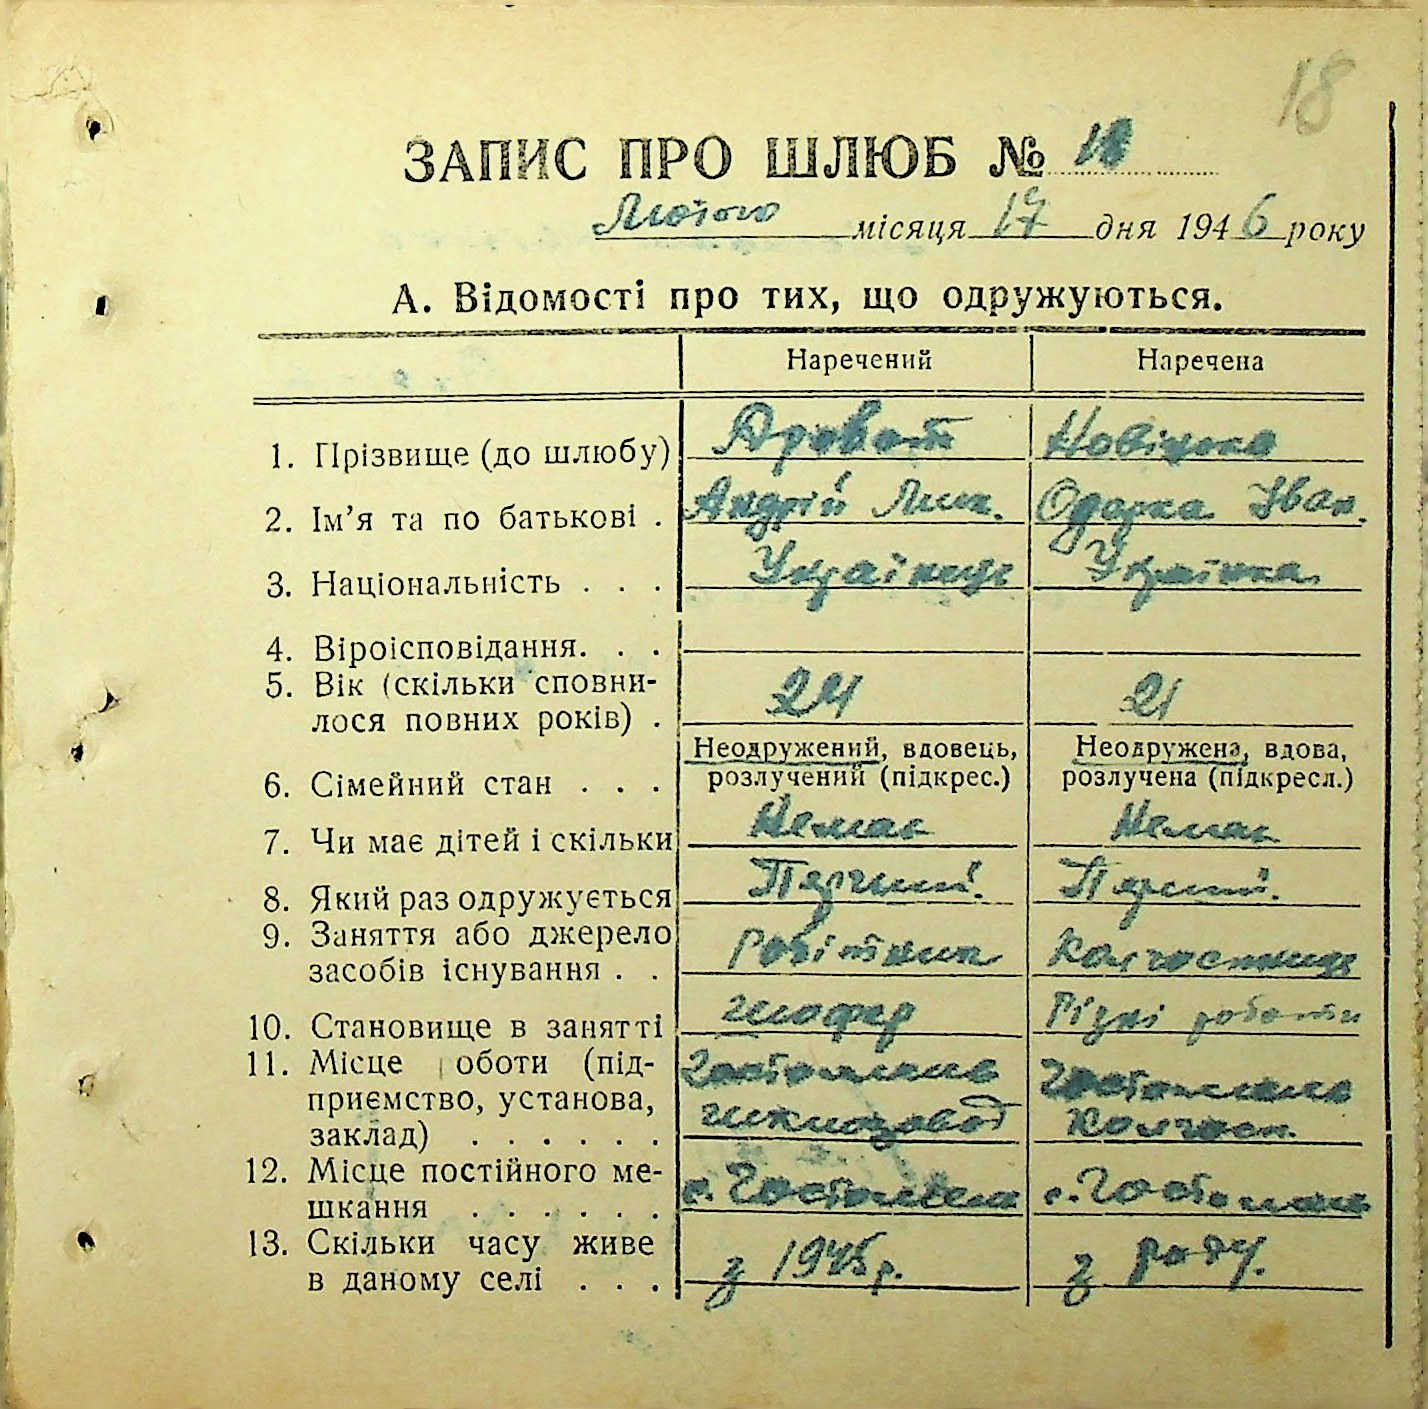 18
ЗАПИС ПРО ШЛЮБ №
Лютого місяця 17 дня 1946 року
А. Відомості про тих, що одружуються.
Наречений Наречена
1. Прізвище (до шлюбу) Новіцька
2. Ім'я та по батькові . Андрій Одарка Іван.
3. Національність . . . Українець Українка
4. Віроісповідання. . .
5. Вік (скільки сповни-
лося повних років) . 24 21
Неодружений, вдовець, Неодружена, вдова,
6. Сімейний стан . . . розлучений (підкрес.) розлучена (підкресл.)
7. Чи має дітей і скільки Немає Немає
8. Який раз одружується Перший. Перший.
9. Заняття або джерело
засобів існування . . Робітник Колгоспниця
10. Становище в занятті шофер Різні роботи
11. Місце оботи (під-
приємство, установа,
заклад) . . . . . . Колгосп.
12. Місце постійного ме-
шкання . . . . . . с. с.
13. Скільки часу живе
в даному селі . . . з 1945 р. з роду.